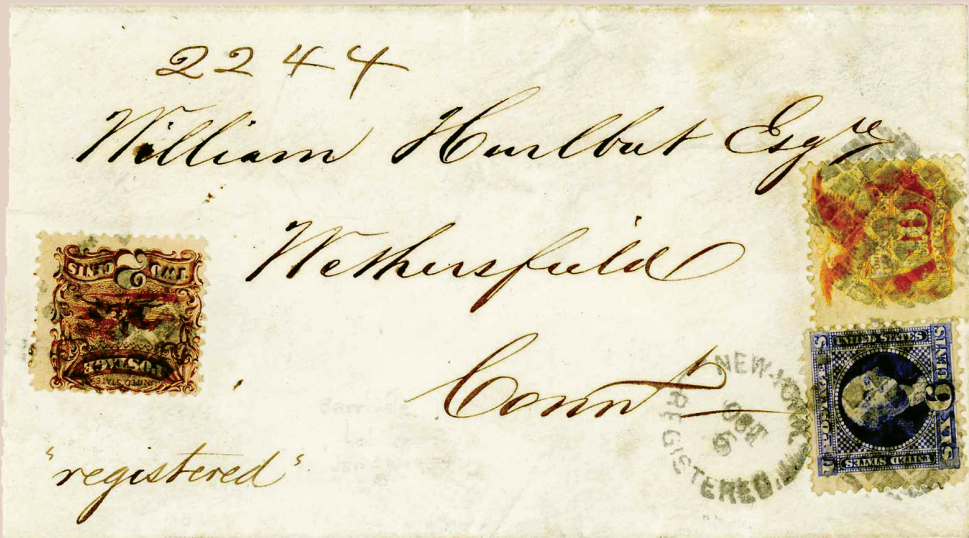 2244
William Hurlbut Esqre
Wethersfield
Connt
"registered"
NEW-YORK
OCT
REGISTERED
TWO CENTS
2
POSTAGE
UNITED STATES
10
UNITED STATES
POSTAGE
6
SIX CENTS